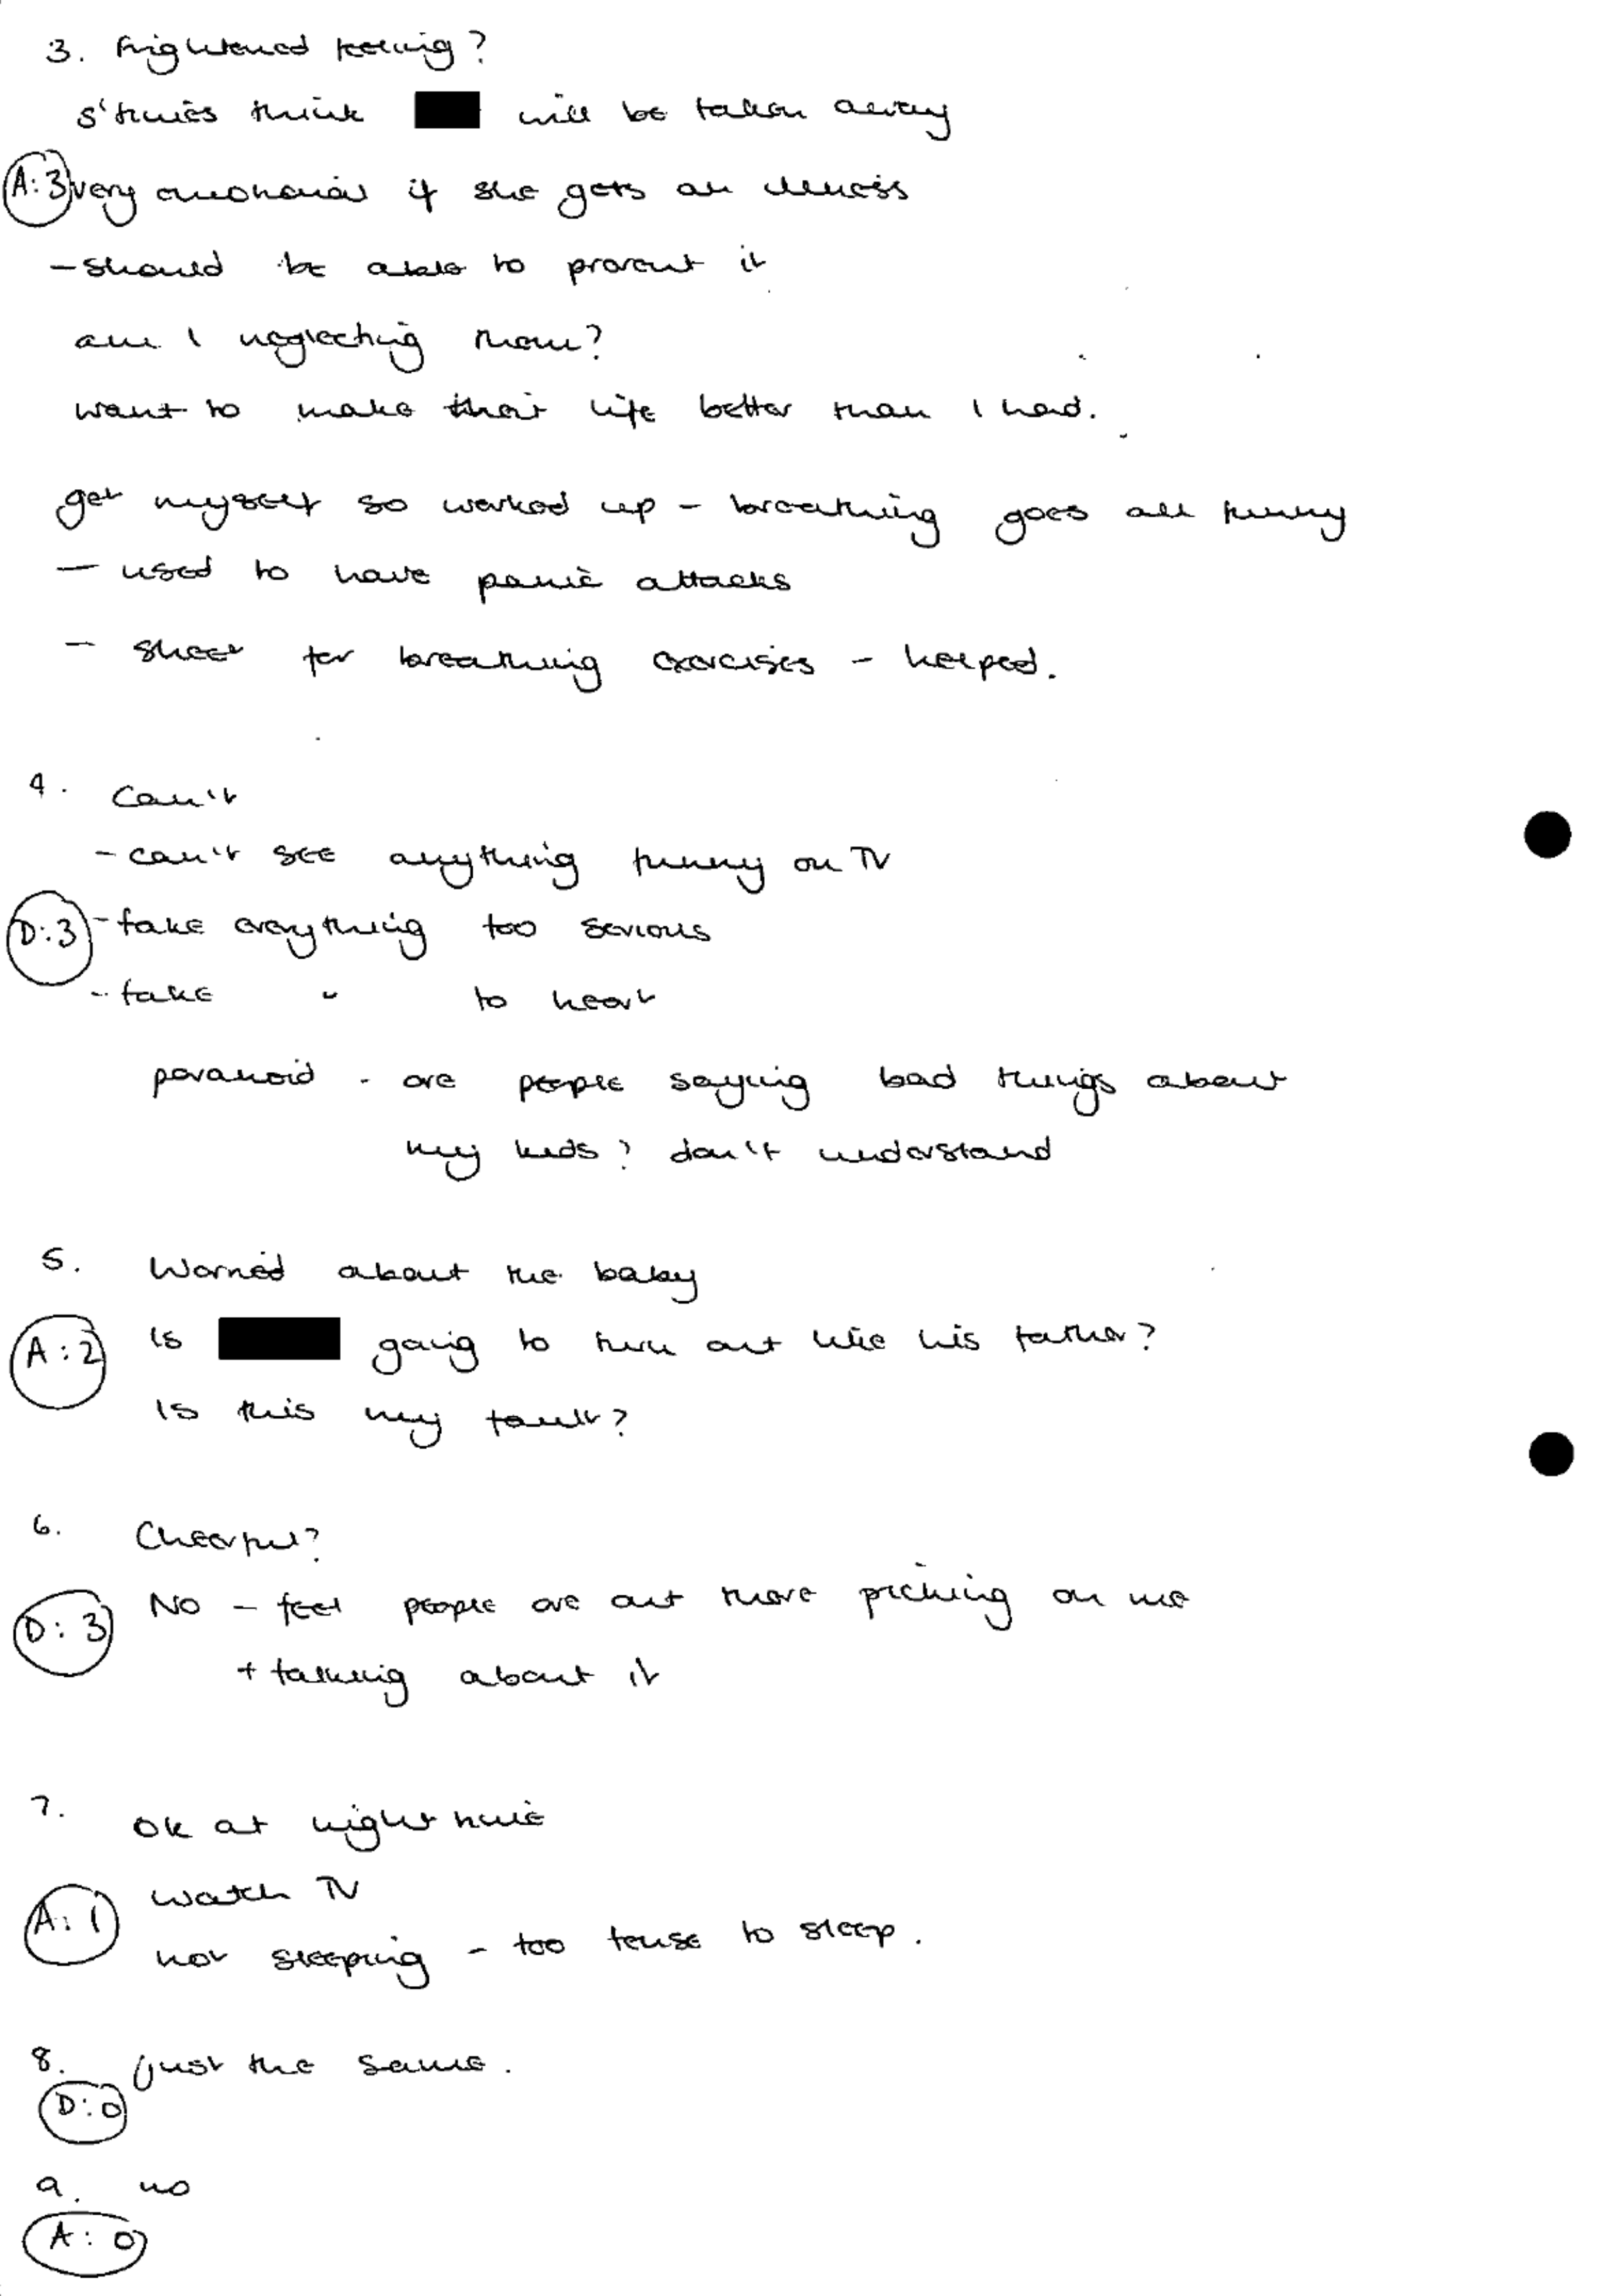 3. Frightened feeling?
s'times think will be taken away
A:3 very emotional if she gets an illness
- should be able to prevent it
am I neglecting them?
want to make their life better than I had.
get myself so worked up - breathing goes all funny
- used to have panic attacks
- sheet for breathing exercises - helped.
4. Can't
- can't see anything funny on TV
D:3 - take everything too serious
- take " to heart
paranoid - are people saying bad things about
my kids? don't understand
5. Worried about the baby
A:2 Is going to turn out like his father?
Is this my fault?
6. Cheerful?
D:3 NO - feel people are out there picking on me
+ talking about it
7. OK at night time
Watch TV
A:1
not sleeping - too tense to sleep.
8. just the same.
D:0
9. no
A:0